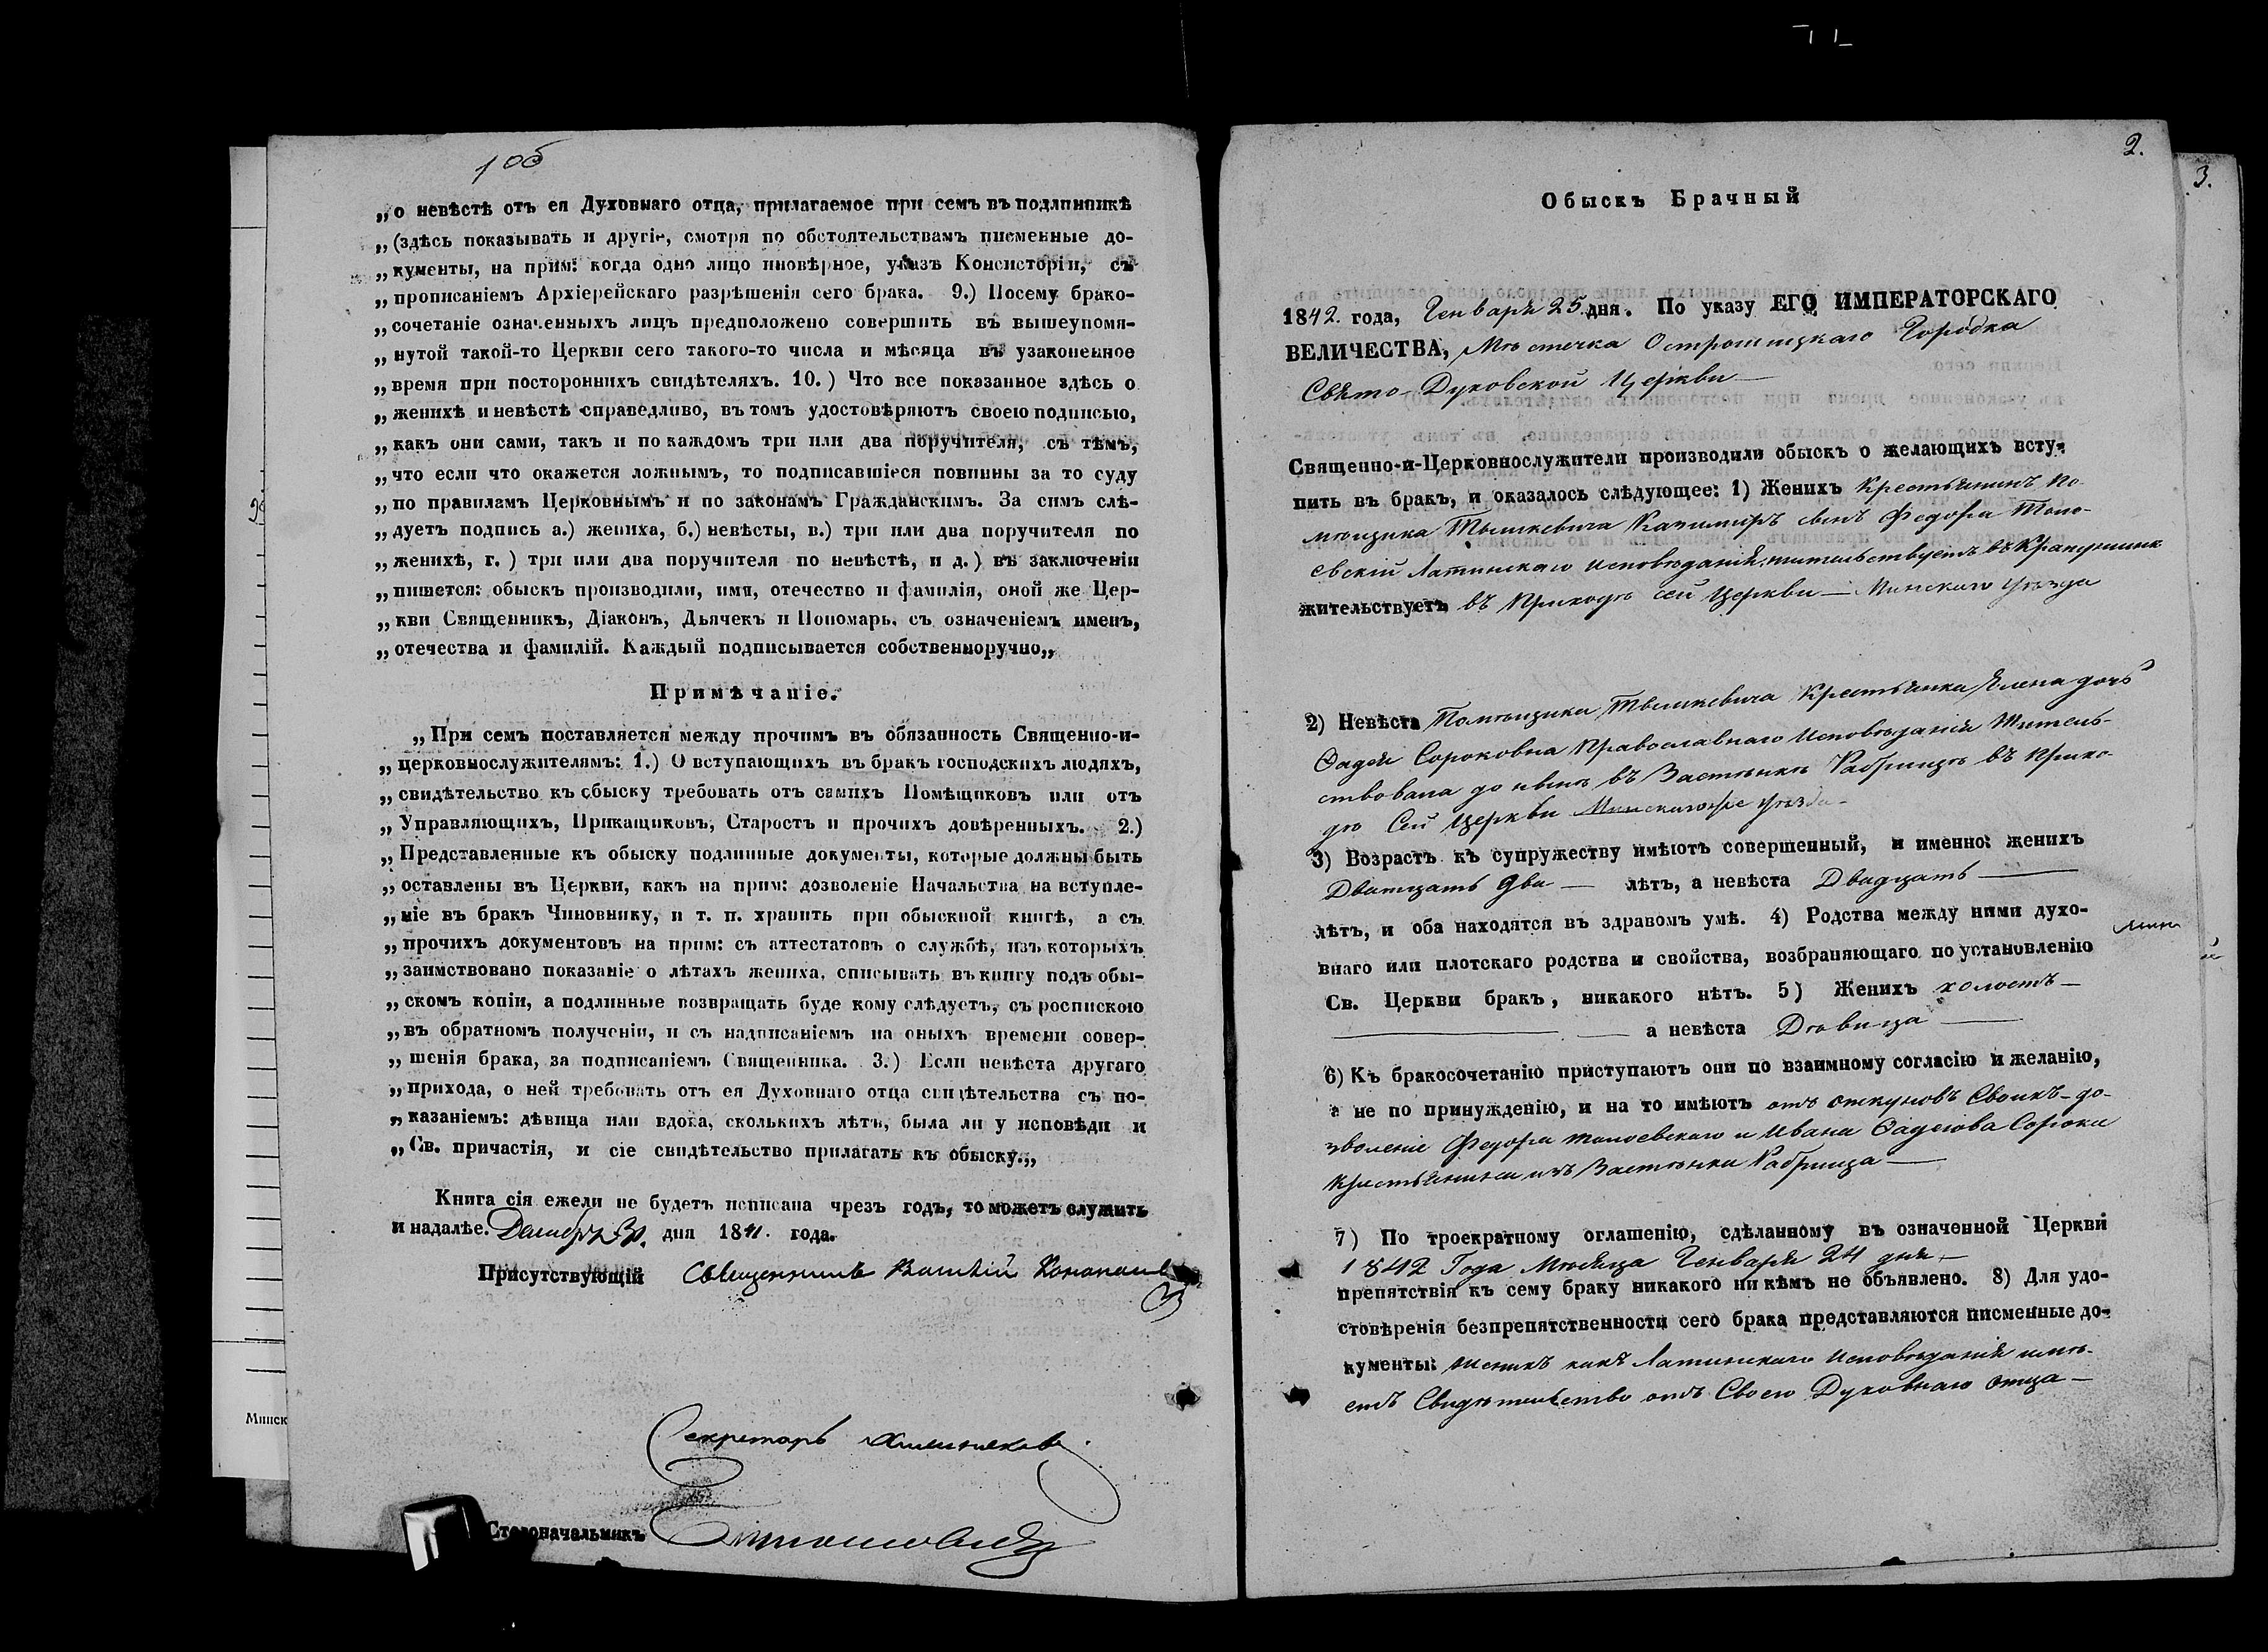 1об
„о невѣстѣ отъ ея Духовнаго отца, прилагаемое при семъ въ подлинникѣ
„(здѣсь показывать и другіе, смотря по обстоятельствамъ писменные до-
„кументы, на прим: когда одно лицо иновѣрное, указъ Консисторіи, съ
„прописаніемъ Архіерейскаго разрѣшенія сего брака. 9.) Посему брако-
„сочетаніе означенныхъ лицъ предположено совершить въ вышеупомя-
„нутой такой-то Церкви сего такого-то числа и мѣсяца въ узаконенное
„время при постороннихъ свидѣтеляхъ. 10.) Что все показанное здѣсь о
„женихѣ и невѣстѣ справедливо, въ томъ удостовѣряютъ своею подписью,
„какъ они сами, такъ и по каждомъ три или два поручителя, съ тѣмъ,
„что если что окажется ложнымъ, то подписавшіеся повинны за то суду
„по правиламъ Церковнымъ и по законамъ Гражданскимъ. За симъ слѣ-
„дуетъ подпись а.) жениха, б.) невѣсты, в.) три или два поручителя по
„женихѣ, г.) три или два поручителя по невѣстѣ, и д.) въ заключеніи
„пишется: обыскъ производили, имя, отечество и фамилія, оной же Цер-
„кви Священникъ, Діаконъ, Дьячекъ и Пономарь, съ означеніемъ именъ,
„отечества и фамилій. Каждый подписывается собственноручно„
Примѣчаніе.
„При семъ поставляется между прочимъ въ обязанность Священно-и-
„церковнослужителямъ: 1.) О вступающихъ въ бракъ господскихъ людяхъ,
„свидѣтельство къ обыску требовать отъ самихъ Помѣщиковъ или отъ
„Управляющихъ, Прикащиковъ, Старостъ и прочихъ довѣренныхъ. 2.)
„Представленные къ обыску подлинные документы, которые должны быть
„оставлены въ Церкви, какъ на прим: дозволеніе Начальства на вступле-
„ніе въ бракъ Чиновнику, и т. п. хранить при обыскной книгѣ, а съ
„прочихъ документовъ на прим: съ аттестатовъ о службѣ, изъ которыхъ
„заимствовано показаніе о лѣтахъ жениха, списывать въ книгу подъ обы-
„скомъ копіи, а подлинные возвращать буде кому слѣдуетъ, съ роспискою
„въ обратномъ полученіи, и съ надписаніемъ на оныхъ времени совер-
„шенія брака, за подписаніемъ Священника. 3.) Если невѣста другаго
„прихода, о ней требовать отъ ея Духовнаго отца свидѣтельства съ по-
„казаніемъ: дѣвица или вдова, сколькихъ лѣтъ, была ли у исповѣди и
„Св. причастія, и сіе свидѣтельство прилагать къ обыску.„
Книга сія ежели не будетъ исписана чрезъ годъ, то можетъ служить
и надалѣе. дня 1841. года.
Присутствующій Священникъ
Секретарь
Столоначальникъ
Минск
2.
3.
Обыскъ Брачный
1842. года, Генваря 25 дня. По указу ЕГО ИМПЕРАТОРСКАГО
ВЕЛИЧЕСТВА, Мѣстечка Острошицкаго Городка
Свято-Духовской Церкви
Священно-и-Церковнослужители производили обыскъ о желающихъ всту-
пить въ бракъ, и оказалось слѣдующее: 1) Женихъ Крестьянинъ по-
мѣщика Тышкевича Казимиръ сынъ Федора
евскій Латинскаго исповѣданія, жительствуетъ въ
жительствуетъ въ Приходѣ сей Церкви — Минскаго уѣзда
2) Невѣста Помѣщика Тышкевича Крестьянка Елена дочь
Фадея Сороковна Православнаго Исповѣданія Житель-
ствовала до нынѣ въ Застѣнкѣ въ прихо-
дѣ Сей Церкви Минскагоже уѣзда
3) Возрастъ къ супружеству имѣютъ совершенный, и именно: женихъ
Дватцать два — лѣтъ, а невѣста Двадцать
лѣтъ, и оба находятся въ здравомъ умѣ. 4) Родства между ними духо-
внаго или плотскаго родства и свойства, возбраняющаго по установленію
Св. Церкви бракъ, никакого нѣтъ. 5) Женихъ холостъ —
а невѣста Дѣвица
6) Къ бракосочетанію приступаютъ они по взаимному согласію и желанію,
а не по принужденію, и на то имѣютъ отъ опекуновъ Своихъ до-
зволеніе Федора и Ивана Фадеюва Сороки
крестьянина изъ Застѣнка
7) По троекратному оглашенію, сдѣланному въ означенной Церкви
1842 Года Мѣсяца Генваря 24 дня —
препятствія къ сему браку никакого ни кѣмъ не объявлено. 8) Для удо-
стовѣренія безпрепятственности сего брака представляются писменные до-
кументы: женихъ какъ Латинскаго Исповѣданія имѣ-
етъ Свидѣтельство отъ Своего Духовнаго отца —